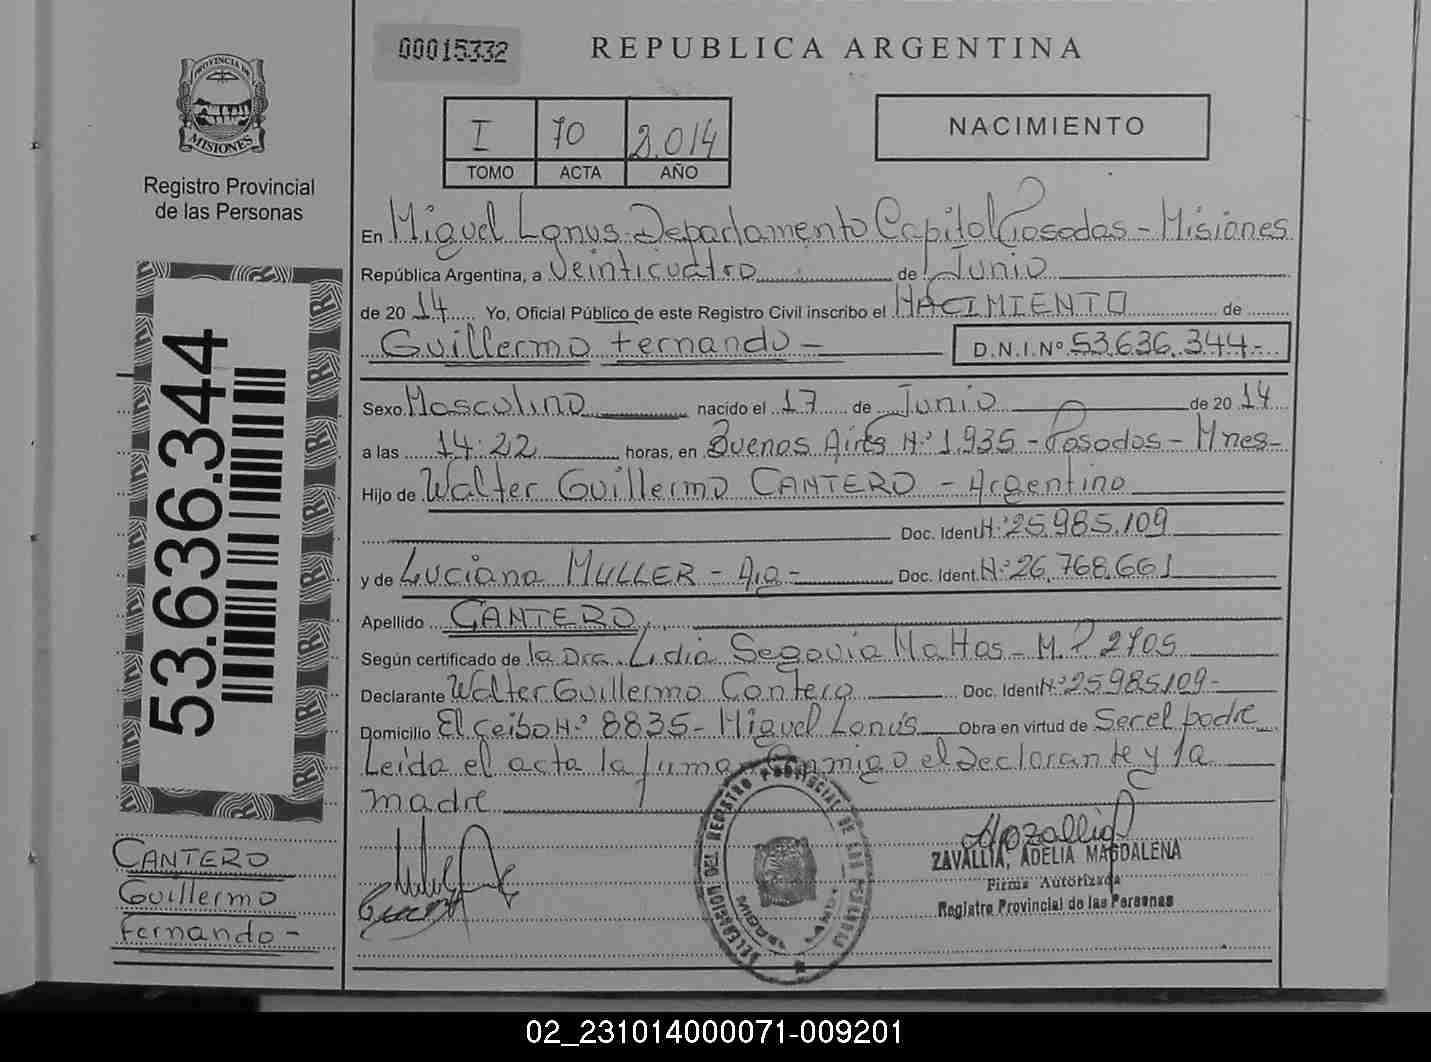 PROVINCIA DE
MISIONES
Registro Provincial
de las Personas
53.636.344
CANTERO
Guillermo
Fernando -
00015332
REPUBLICA ARGENTINA
I 70 2.014
TOMO ACTA AÑO
NACIMIENTO
En Miguel Lanus - Departamento Capital Posadas - Misiones
República Argentina, a Veinticuatro de Junio
de 20 14 Yo, Oficial Público de este Registro Civil inscribo el NACIMIENTO de
Guillermo Fernando - D.N.I.Nº 53.636.344-
Sexo Masculino nacido el 17 de Junio de 20 14
a las 14:22 horas, en Buenos Aires Nº 1.935 - Posadas - Mnes-
Hijo de Walter Guillermo CANTERO - Argentino
Doc. Ident. Nº 25.985.109
y de Luciana MULLER - Arg - Doc. Ident. Nº 26.768.661
Apellido CANTERO
Según certificado de la Dra. Lidia Segovia Mattos - M.P 2705
Declarante Walter Guillermo Cantero Doc. Ident Nº 25985109-
Domicilio El Ceibo Nº 8835 - Miguel Lanús Obra en virtud de Ser el padre
Leida el acta la firma Conmigo el Declarante y la
madre
DELEGACION DEL REGISTRO PROVINCIAL DE LAS PERSONAS
ZAVALLIA, ADELIA MAGDALENA
Firma Autorizada
Registro Provincial de las Personas
02_231014000071-009201